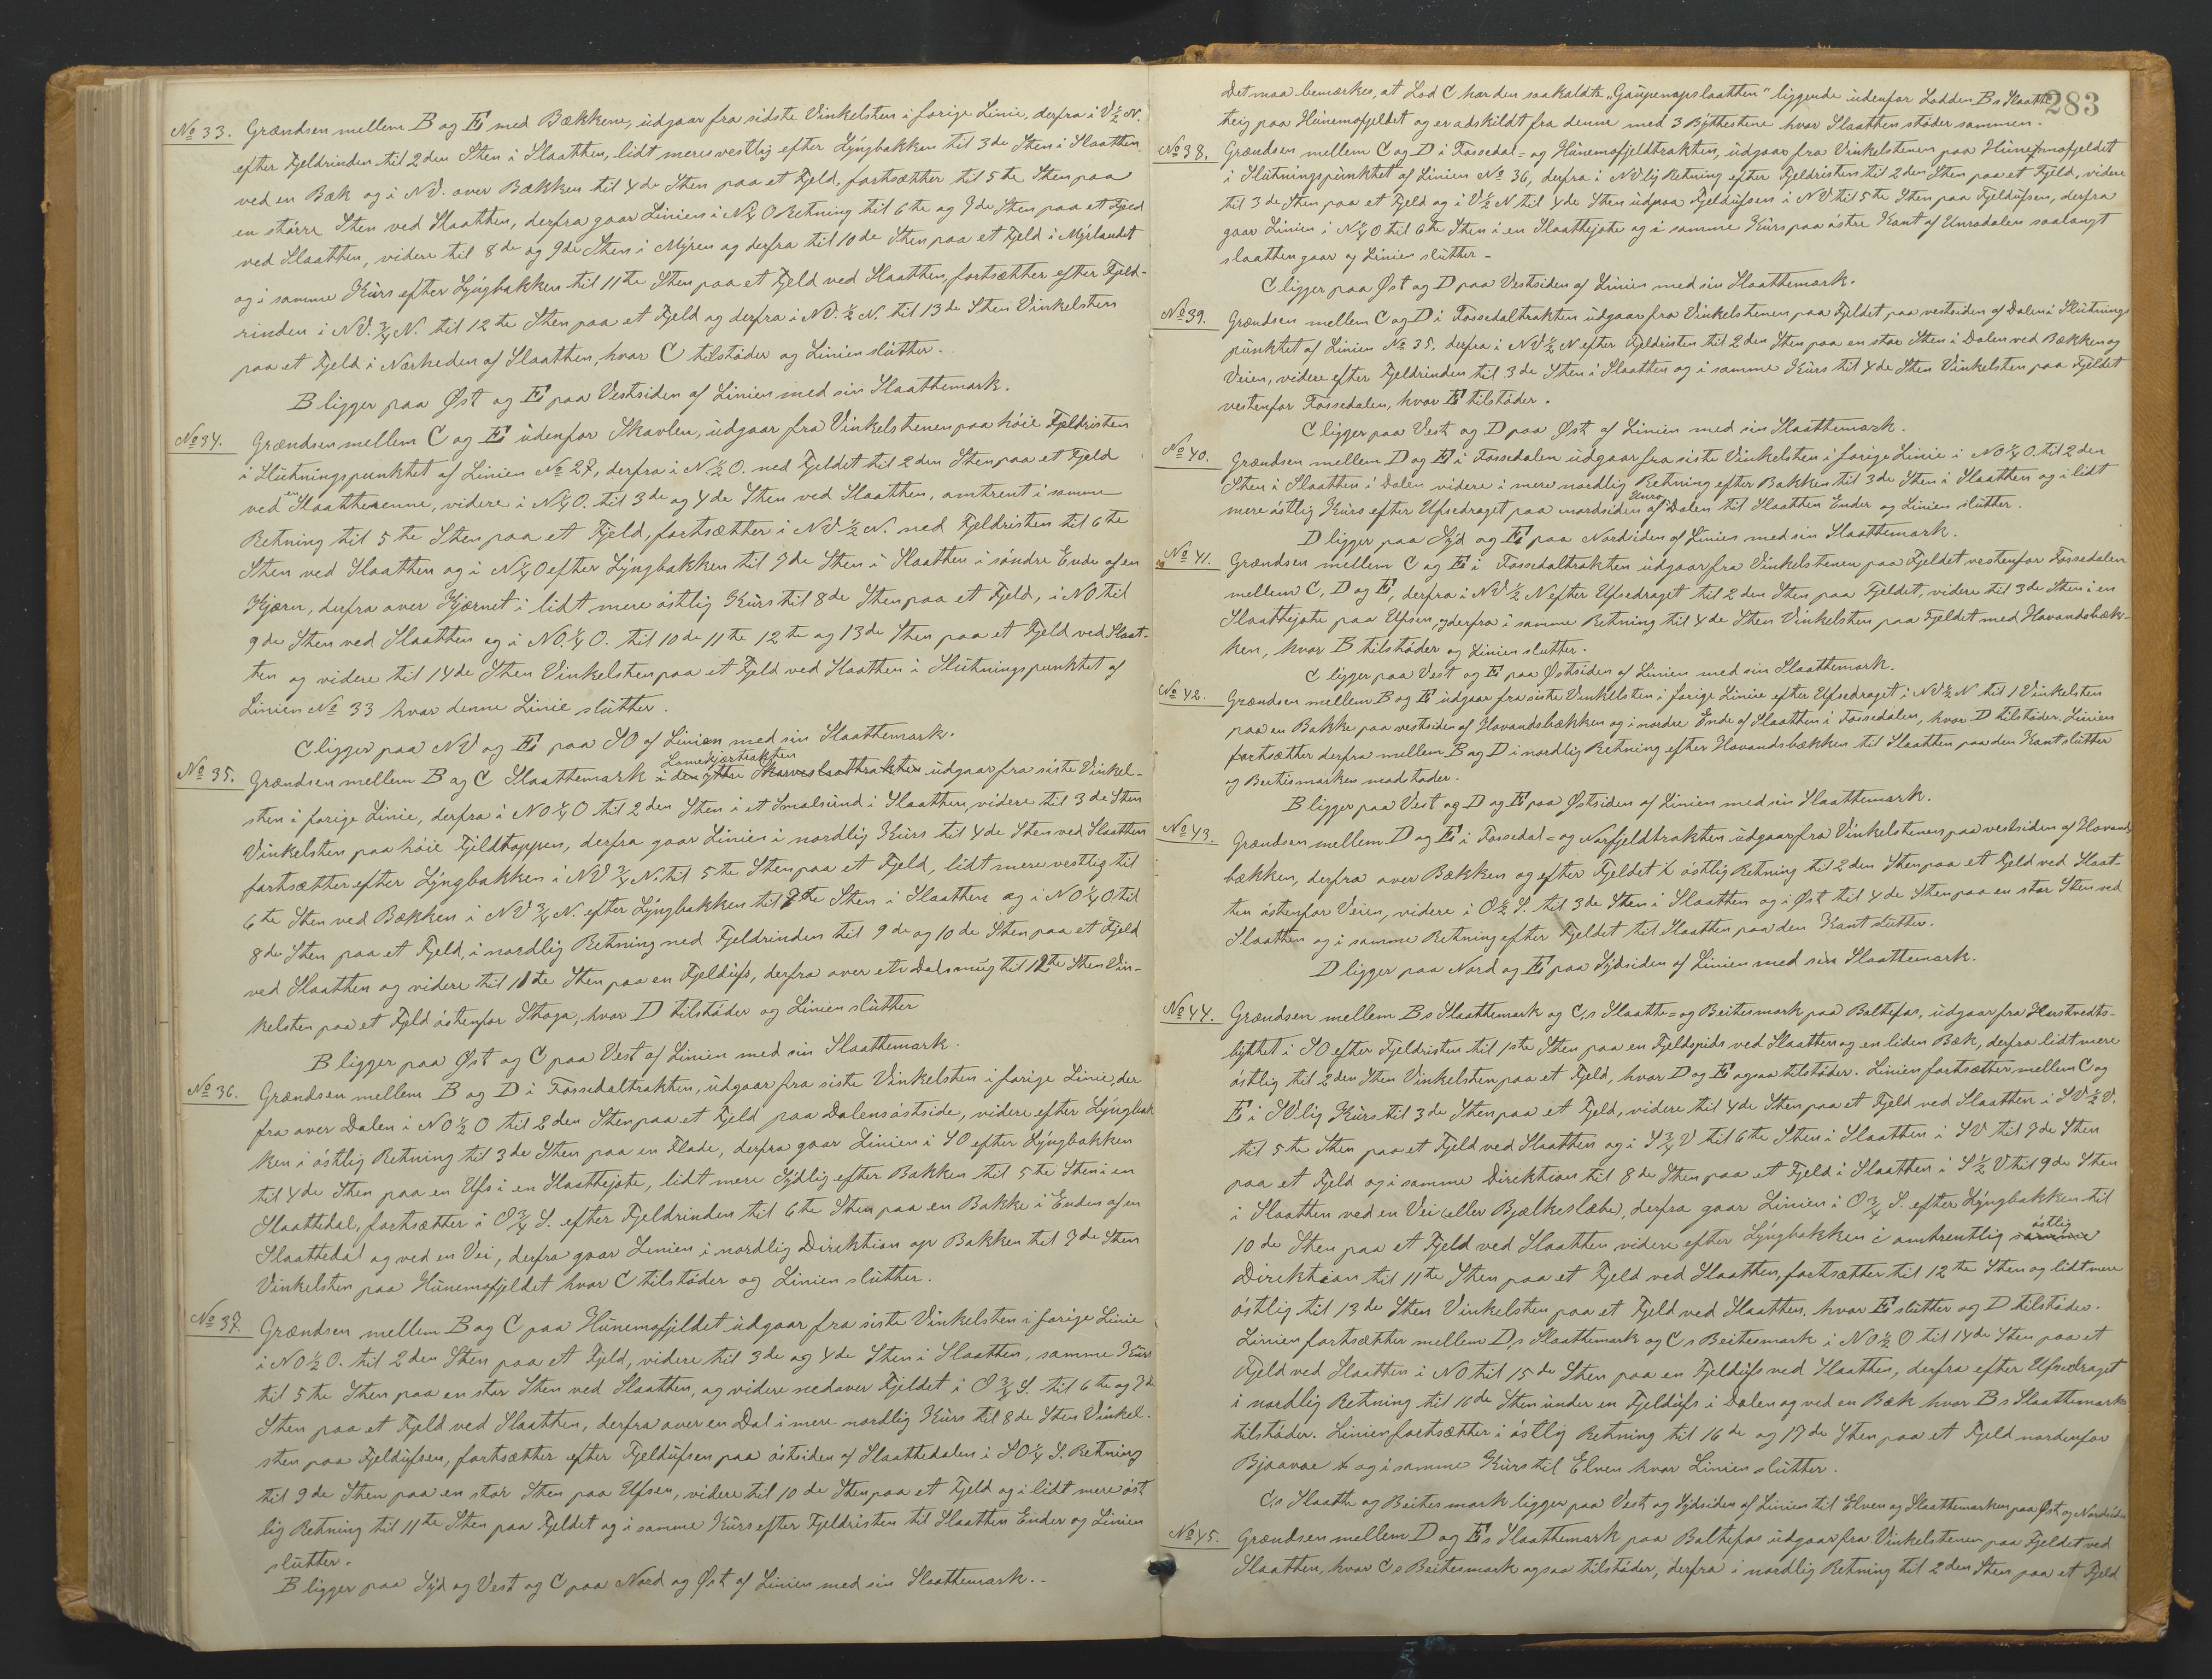 No 33. Grændsen mellem B og E med Bækkene, udgaar fra sidste Vinkelsten i forige Linie, derfra i V ½ N.
efter Fjeldrinden til 2den Sten i Slaatten, lidt mere vestlig efter Lyngbakken til 3de Sten i Slaatten
ved en Bæk og i NV. over Bækken til 4de Sten paa et Fjeld, fortsætter til 5te Sten paa
en större Sten ved Slaatten, derfra gaar Linien i N ¼ O Retning til 6te og 7de Sten paa et Fjeld
ved Slaatten, videre til 8de og 9de Sten i Myren og derfra til 10de Sten paa et Fjeld i Myrlandet
og i samme Kurs efter Lyngbakken til 11te Sten paa et Fjeld ved Slaatten, fortsætter efter Fjeld-
rinden i NV. ¾ N. til 12te Sten paa et Fjeld og derfra i NV. ½ N. til 13de Sten Vinkelsten
paa et Fjeld i Nærheden af Slaatten, hvor C tilstöder og Linien slutter.
B ligger paa Øst og E paa Vestsiden af Linien med sin Slaattemark.
No 34. Grændsen mellem C og E udenfor Skavlen, udgaar fra Vinkelstenen paa höie Fjeldristen
i Slutningspunktet af Linien No 27, derfra i N ½ O. ned Fjeldet til 2den Sten paa et Fjeld
ved en Slaatterenne, videre i N ¼ O. til 3de og 4de Sten ved Slaatten, omtrent i samme
Retning til 5te Sten paa et Fjeld, fortsætter i NV ½ N. ned Fjeldristen til 6te
Sten ved Slaatten og i N ¼ O efter Lyngbakken til 7de Sten i Slaatten i söndre Ende af en
Kjærn, derfra over Kjærnet i lidt mere östlig Kurs til 8de Sten paa et Fjeld, i NO til
9de Sten ved Slaatten og i NO. ¼ O. til 10de 11te 12te og 13de Sten paa et Fjeld ved Slaat-
ten og videre til 14de Sten Vinkelsten paa et Fjeld ved Slaatten i Slutningspunktet af
Linien No 33 hvor denne Linie slutter.
C ligger paa NV og E paa SO af Linien med sin Slaattemark.
Lomekjærtrakten
No 35. Grændsen mellem B og C Slaattemark i den yttre Skarveslaattrakten udgaar fra siste Vinkel-
sten i forige Linie, derfra i NO ¼ O til 2den Sten i et Smalsund i Slaatten, videre til 3de Sten
Vinkelsten paa höie Fjeldtoppen, derfra gaar Linien i nordlig Kurs til 4de Sten ved Slaatten
fortsætter efter Lyngbakken i NV ¾ N. til 5te Sten paa et Fjeld, lidt mere vestlig til
6te Sten ved Bækken i NV ¾ N. efter Lyngbakken til 7de Sten i Slaatten og i NO ¼ O til
8de Sten paa et Fjeld, i nordlig Retning ned Fjeldrinden til 9de og 10de Sten paa et Fjeld
ved Slaatten og videre til 11te Sten paa en Fjeldufs, derfra over et Dalsmug til 12te Sten Vin-
kelsten paa et Fjeld östenfor Skoga, hvor D tilstöder og Linien slutter
B ligger paa Øst og C paa Vest af Linien med sin Slaattemark.
No 36. Grændsen mellem B og D i Fossedaltrakten, udgaar fra siste Vinkelsten i forige Linie, der
fra over Dalen i NO ½ O til 2den Sten paa et Fjeld paa Dalens östside, videre efter Lyngbak
ken i östlig Retning til 3de Sten paa en Flade, derfra gaar Linien i SO efter Lyngbakken
til 4de Sten paa en Ufs i en Slaattejote, lidt mere Sydlig efter Bakken til 5te Sten i en
Slaattedal, fortsætter i O ¾ S. efter Fjeldrinden til 6te Sten paa en Bakke i Enden af en
Slaattedal og ved en Vei, derfra gaar Linien i nordlig Direktion op Bakken til 7de Sten
Vinkelsten paa Hunemofjeldet hvor C tilstöder og Linien slutter.
No 37. Grændsen mellem B og C paa Hunemofjeldet udgaar fra siste Vinkelsten i forige Linie
i NO ½ O. til 2den Sten paa et Fjeld, videre til 3de og 4de Sten i Slaatten, samme Kurs
til 5te Sten paa en stor Sten ved Slaatten, og videre nedover Fjeldet i O ¾ S. til 6te og 7de
Sten paa et Fjeld ved Slaatten, derfra over en Dal i mere nordlig Kurs til 8de Sten Vinkel-
sten paa Fjeldufsen, fortsætter efter Fjeldufsen paa östsiden af Slaattedalen i SO ¼ S. Retning
til 9de Sten paa en stor Sten paa Ufsen, videre til 10de Sten paa et Fjeld og i lidt mere öst
lig Retning til 11te Sten paa Fjeldet og i samme Kurs efter Fjeldristen til Slaatten Ender og Linien
slutter.
B ligger paa Syd og Vest og C paa Nord og Øst af Linien med sin Slaattemark..
283
Det maa bemærkes, at Lod C har den saakaldte "Gaupenapslaatten" liggende udenfor Lodden Bs Slaatte
teig paa Hunemofjeldet og er adskildt fra denne med 3 Byttestene hvor Slaatten stöder sammen.
No 38. Grændsen mellem C og D i Fossedal- og Hunemofjeldtrakten, udgaar fra Vinkelstenen paa Hunemofjeldet
i Slutningspunktet af Linien No 36, derfra i NVlig Retning efter Fjeldristen til 2den Sten paa et Fjeld, videre
til 3de Sten paa et Fjeld og i V ½ N til 4de Sten udpaa Fjeldufsen i NV til 5te Sten paa Fjeldufsen, derfra
gaar Linien i N ¼ O til 6te Sten i en Slaattejote og i samme Kurs paa östre Kant af Unrodalen saalangt
slaatten gaar og Linien slutter-
C ligger paa Øst og D paa Vestsiden af Linien med sin Slaattemark.
No 39. Grændsen mellem C og D i Fossedaltrakten udgaar fra Vinkelstenen paa Fjeldet paa vestsiden af Dalen i Slutnings
punktet af Linien No 35, derfra i NV ½ N efter Fjeldristen til 2den Sten paa en stor Sten i Dalen ved Bækken og
Veien, videre efter Fjeldrinden til 3de Sten i Slaatten og i samme Kurs til 4de Sten Vinkelsten paa Fjeldet
vestenfor Fossedalen, hvor E tilstöder.
C ligger paa Vest og D paa Øst af Linien med sin Slaattemark.
No 40. Grændsen mellem D og E i Fossedalen udgaar fra siste Vinkelsten i forige Linie i NO ¼ O. til 2den
Sten i Slaatten i Dalen videre i mere nordlig Retning efter Bakken til 3de Sten i Slaatten og i lidt
mere östlig Kurs efter Ufsedraget paa nordsiden af Unro Dalen til Slaatten Ender og Linien slutter.
D ligger paa Syd og E paa Nordsiden af Linien med sin Slaattemark.
No 41. Grændsen mellem C og E i Fossedaltrakten udgaar fra Vinkelstenen paa Fjeldet vestenfor Fossedalen
mellem C, D og E, derfra i NV ½ N efter Ufsedraget til 2den Sten paa Fjeldet, videre til 3de Sten i en
Slaattejote paa Ufsen, og derfra i samme Retning til 4de Sten Vinkelsten paa Fjeldet med Hovandsbæk-
ken, hvor B tilstöder og Linien slutter.
C ligger paa Vest og E paa Østsiden af Linien med sin Slaattemark.
No 42. Grændsen mellem B og E udgaar fra siste Vinkelsten i forige Linie efter Ufsedraget i NV ½ N til 1 Vinkelsten
paa en Bakke paa vestsiden af Hovandsbækken og i nordre Ende af Slaatten i Fossedalen, hvor D tilstöder. Linien
fortsætter derfra mellem B og D i nordlig Retning efter Hovandsbækken til Slaatten paa den Kant slutter
og Beitesmarken modstöder.
B ligger paa Vest og D og E paa Østsiden af Linien med sin Slaattemark.
No 43. Grændsen mellem D og E i Fossedal- og Norfjeldtrakten udgaar fra Vinkelstenen paa vestsiden af Hovands
bækken, derfra over Bækken og efter Fjeldet i östlig Retning til 2den Sten paa et Fjeld ved Slaat-
ten östenfor Veien, videre i O ½ S. til 3de Sten i Slaatten og i Øst til 4de Sten paa en stor Sten ved
Slaatten og i samme Retning efter Fjeldet til Slaatten paa den Kant slutter.
D ligger paa Nord og E paa Sydsiden af Linien med sin Slaattemark.
No 44. Grændsen mellem Bs Slaattemark og C,s Slaatte- og Beitesmark paa Baltefos, udgaar fra Harstvedts-
byttet i SO efter Fjeldristen til 1ste Sten paa en Fjeldspids ved Slaatten og en liden Bæk, derfra lidt mere
östlig til 2den Sten Vinkelsten paa et Fjeld, hvor D og E ogsaa tilstöder. Linien fortsætter mellem C og
E i SVlig Kurs til 3de Sten paa et Fjeld, videre til 4de Sten paa et Fjeld ved Slaatten i SV ½ V.
til 5te Sten paa et Fjeld ved Slaatten og i S ¾ V til 6te Sten i Slaatten i SV til 7de Sten
paa et Fjeld og i samme Direktion til 8de Sten paa et Fjeld i Slaatten i S ½ V til 9de Sten
i Slaatten ved en Vei (eller Bjælkeslæbe), derfra gaar Linien i O ¾ S. efter Lyngbakken til
10de Sten paa et Fjeld ved Slaatten videre efter Lyngbakken i omtrentlig samme östlig
Direktion til 11te Sten paa et Fjeld ved Slaatten, fortsætter til 12te Sten og lidt mere
östlig til 13de Sten Vinkelsten paa et Fjeld ved Slaatten, hvor E slutter og D tilstöder.
Linien fortsætter mellem D,s Slaattemark og C,s Beitesmark i NO ½ O til 14de Sten paa et
Fjeld ved Slaatten i NO til 15de Sten paa en Fjeldufs ved Slaatten, derfra efter Ufsedraget
i nordlig Retning til 16de Sten under en Fjeldufs i Dalen og ved en Bæk hvor Bs Slaattemark
tilstöder. Linien fortsætter i östlig Retning til 16de og 17de Sten paa et Fjeld nordenfor
Bjaavae og i samme Kurs til Elven hvor Linien slutter.
C,s Slaatte og Beitesmark ligger paa Vest og Sydsiden af Linien til Elven og Slaattemarken paa Øst og Nordsiden
No 45. Grændsen mellem D og Es Slaattemark paa Baltefos udgaar fra Vinkelstenen paa Fjeldet ved
Slaatten, hvor C,s Beitesmark ogsaa tilstöder, derfra i nordlig Retning til 2den Sten paa et Fjeld